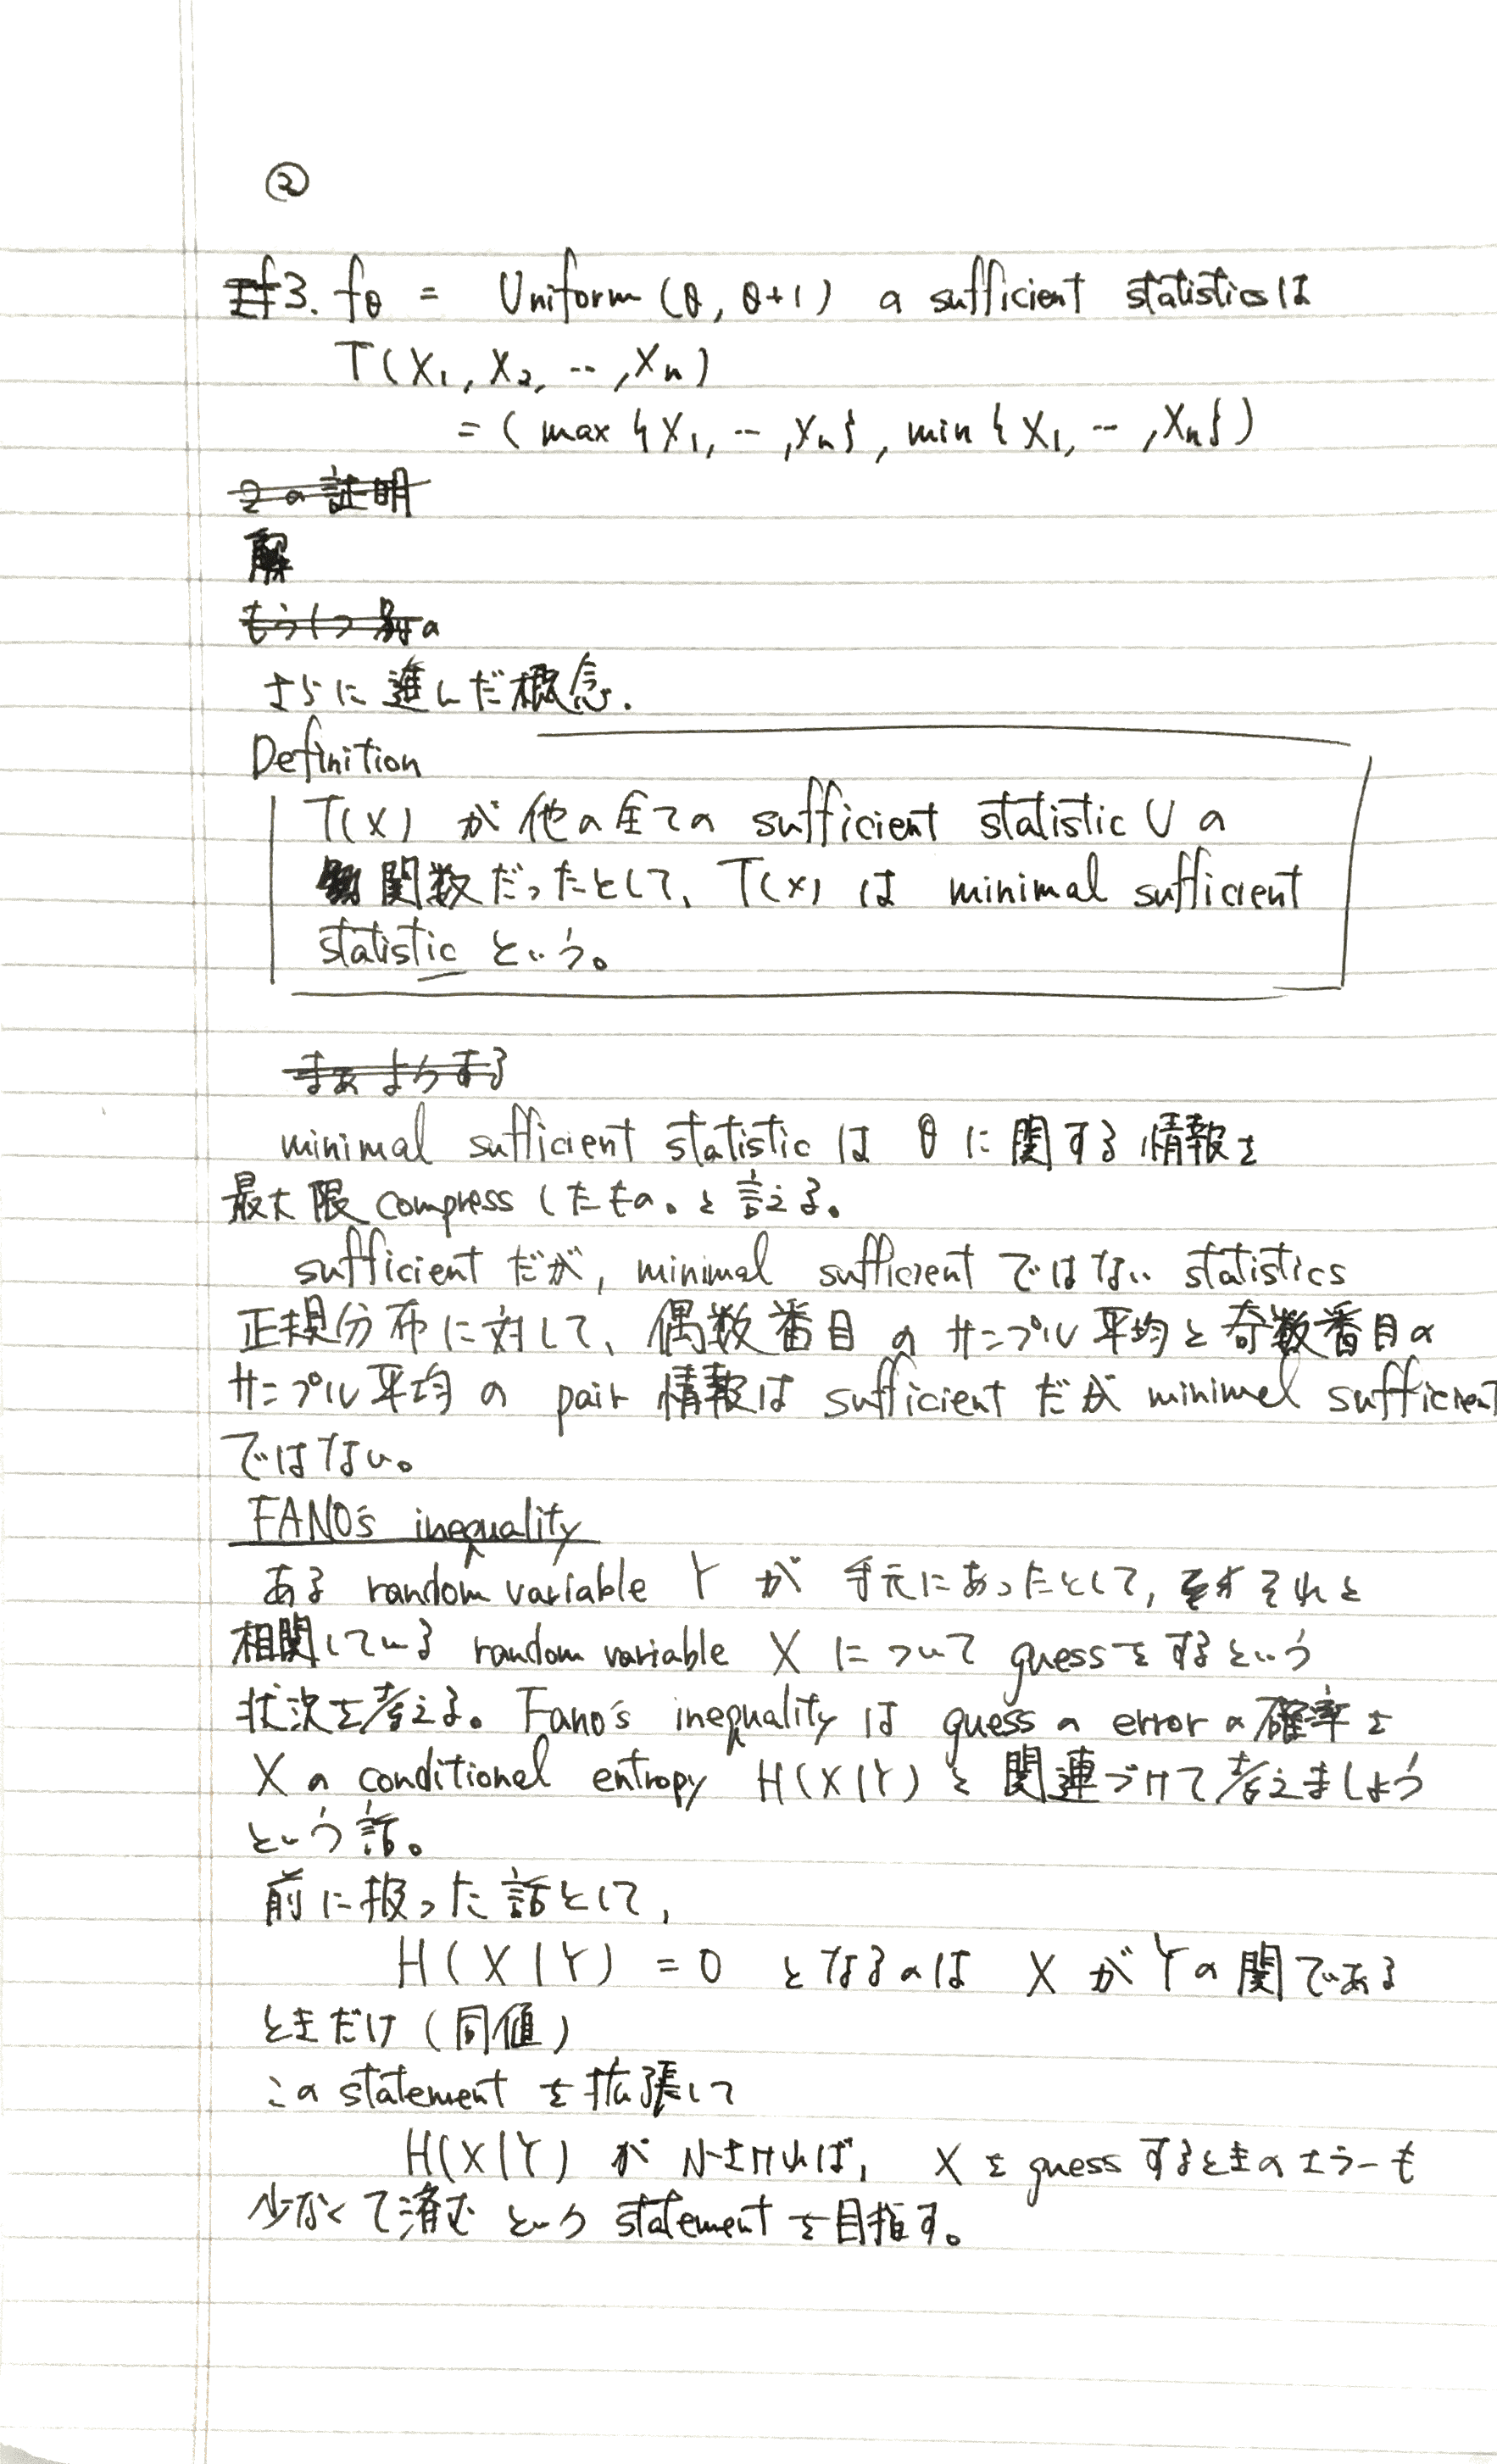 ②
3. fθ = Uniform (θ, θ+1) の sufficient statisticsは
T(X₁, X₂, …, Xn)
= (max{X₁, …, Xn}, min{X₁, …, Xn})
2の証明
解
もう1つ別の
さらに進んだ概念.
Definition
T(X) が他の全ての sufficient statistic U の
関数だったとして、T(X) は minimal sufficient
statistic という。
minimal sufficient statistic は θ に関する情報を
最大限 compress したもの。と言える。
sufficient だが, minimal sufficient ではない statistics
正規分布に対して、偶数番目のサンプル平均と奇数番目の
サンプル平均の pair 情報は sufficient だが minimal sufficient
ではない。
FANO's inequality
ある random variable Y が 手元にあったとして, それと
相関している random variable X について guessをするという
状況を考える。Fano's inequality は guess の error の確率を
X の conditional entropy H(X|Y) と関連づけて考えましょう
という話。
前に扱った話として,
H(X|Y) = 0 となるのは X が Y の関である
ときだけ (同値)
この statement を拡張して
H(X|Y) が 小さければ, X を guess するときのエラーも
少なくて済む という statement を目指す。